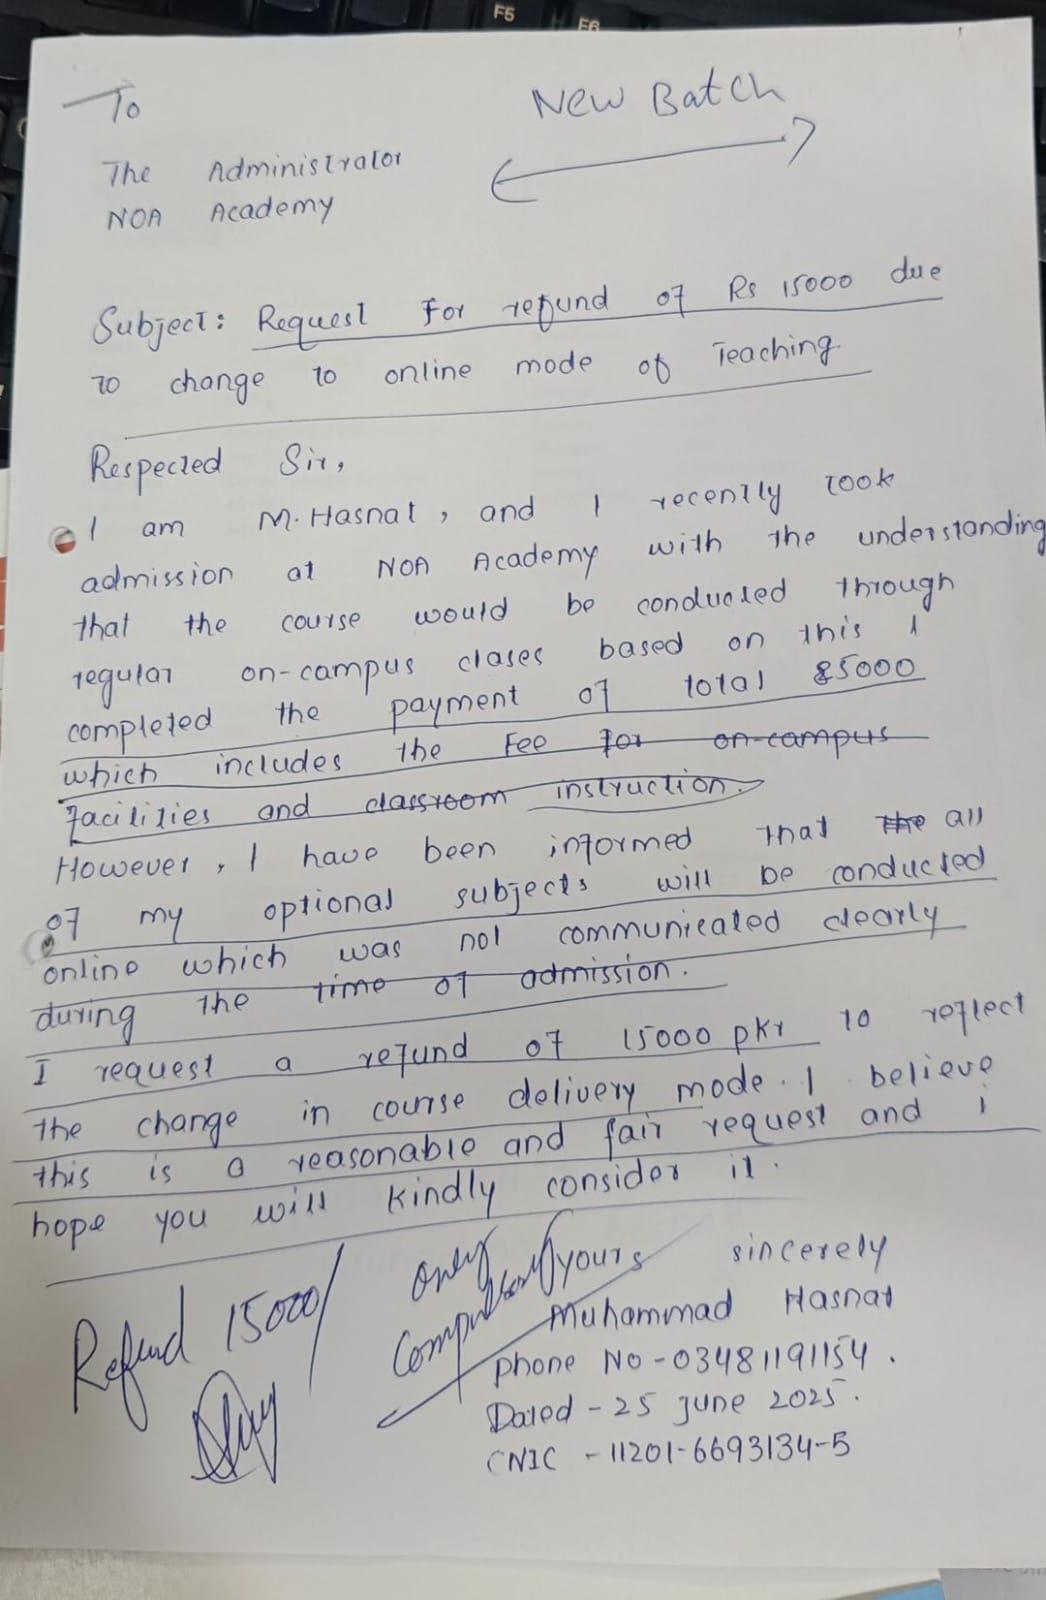 F5
F6
To
New Batch
The Administrator
NOA Academy
Subject: Request For refund of Rs 15000 due
to change to online mode of Teaching.
Respected Sir,
I am M. Hasnat, and I recently took
admission at NOA Academy with the understanding
that the course would be conducted through
regular on-campus clases based on this I
completed the payment of total 85000
which includes the Fee for on-campus
facilities and classroom instruction.
However, I have been informed that the all
of my optional subjects will be conducted
online which was not communicated clearly
during the time of admission.
I request a refund of 15000 pkr to reflect
the change in course delivery mode. I believe
this is a reasonable and fair request and i
hope you will kindly consider it.
yours sincerely
Muhammad Hasnat
Phone No - 03481191154.
Dated - 25 June 2025.
CNIC - 11201-6693134-5
Refund 15000/ only